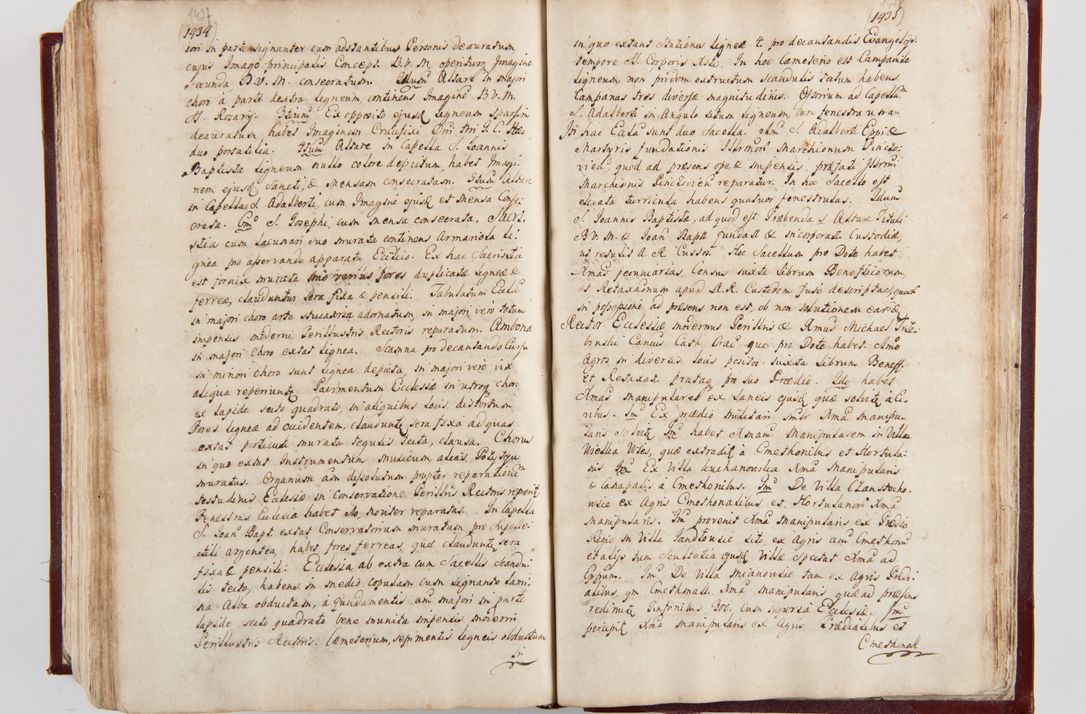 1437
(1434)
tori in parte signanter cum adstantibus Personis deauratum
cujus Imago principalis Concept. B.V.M. operitum Imagine
secunda B.V.M. consecratum. Altare in majori
choro à parte dextra ligneum, continens Imaginem B.V.M.
SS. Rosarij. Ex opposito ejusdem ligneum sparsim
deauratum, habet Imaginem Crucifixi Dni Nri J.C.
duo portatilia. Item Altare in Capella S. Joannis
Baptistæ ligneum nullo colore depictum, habet Imagi
nem ejusdem Sancti, & Mensam consecratam. Item Altare
in Capella S. Adalberti, cum Imagine ejusdem et Mensa Conse
crata. S. Josephi, cum mensa consecrata. Sacri
stia cum Lacunari suo murata continens Armariola li
gnea pro asservando apparatu Ecclæ. Ex hac Sacristia
est fornix murata fores duplicatæ ligneæ &
ferreæ, clauduntur sera fixa & pensili. Tabulatum Ecclæ
in majori choro arte stucatoria adornatum, in majori vero totum
impensis moderni Perillustris Rectoris reparatum. Ambona
in majori Choro extat lignea. Scamna pro decantando Cursu
in minori choro sunt lignea depicta, in majori vero vix
aliqua reperiuntur. Pavimentum Ecclesiæ in utroque choro
ex lapide secto quadrato, in aliquibus locis distortum
Fores ligneæ ad occidentem, clauduntur sera fixa ad quas
extat porticus murata tegulis tecta, clausa. Chorus
in quo extat Instrumentum musicum, alias Pozytyw
muratus. Organum dissolutum propter reparationem
testudinis Ecclesiæ in Conservatione Perillris Rectoris reperitur
Fenestras Ecclesia habet No. noviter reparatas. In Capella
S. Joan: Bapt. extat Conservatorium muratum pro supelle
ctili argentea, habet fores ferreas, quæ clauduntur sera
fixa & pensili: Ecclesia ab extra cum Sacellis Scandu
lis tecta, habens in medio copulam cum signanto lami
na Alba obductam, à fundamentis majori in parte
lapide secto quadrato bene munita impensis moderni
Perillustris Rectoris. Cæmeterium, sepimentis ligneis obductum
in
(1435)
in quo extant Stationes ligneæ 4. pro decantandis Evangelijs
tempore SS. Corporis Xsti. In hoc Cæmeterio est Campanile
ligneum, non pridem extructum Scandulis tectum habens
Campanas tres diversæ magnitudinis. Ossarium ad Capellam
S. Adalberti in Angulo situm ligneum, cum fenestra mura
In hac Eccla sunt duo Sacella. S. Adalberti Eppi &
Martyris fundationis Illrmor Marchionum Pinczo
vien, quod ad præsens ope & impensis præfati Illrmi
Marchionis Pinczovien reparatur. In hoc Sacello est
elevata turricula habens quatuor fenestrulas. 2dum
S. Joannis Baptistæ, ad quod est Præbenda & Altare Tituli
B.V.M. & Joan: Bapt: fundatæ & incorporatæ Custodiæ,
Hoc Sacellum pro Dote habet
Amas pecuniarias, Census juxta Librum Beneficiorum
et Retaxarum apud A.R. Custodem fusè descriptas, quar
in possessione ad præsens non est, ob non solutionem eard
Rector Ecclesiæ modernus Perillris & Rmus Michael
Canus Cath. Crac. qui pro Dote habet. Imo
Agros in diversis locis positos juxta Librum Beneff.
et Retaxat. Prata pro suo Prædio. 2do habet
Xmas manipulares ex Laneis ejusdem quæ solvit à Ci
vibus. Im Ex prædio militari Xma manipu
laris solvit Im habet Xmam manipularem in Villa
Wielka Wies, quæ extradit à Cmethonibus et Hortula
nis Ex Villa Xma manipularis
& Canapalis à Cmethonibus. Im De Villa
vsie ex Agris Cmethonalibus et Hortulanor Xma
manipularis. Im provenit Xma manipularis ex Prædio
Regio in Villa Sandkovsie sito, ex Agris Cmethonum
et alijs dum Scultetia ejusdem Villæ spectat Xma ad
Eppum. Im De Villa Mianovsie tam ex Agris Prædi
alibus, qm Cmethonal: Xma manipularis quæ ad præsens
redimitur Cum injuria Ecclesiæ, Im
percipit Xma manipularis ex Agris Prædialibus et
Cmethonal